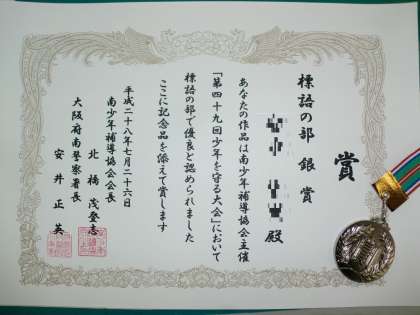 賞
標語の部 銀賞
殿
あなたの作品は南少年補導協会主催
「第四十九回少年を守る大会」において
標語の部で優良と認められました
ここに記念品を添えて賞します
平成二十八年七月二十六日
南少年補導協会会長
北橋茂登志
大阪府南警察署長
安井正英